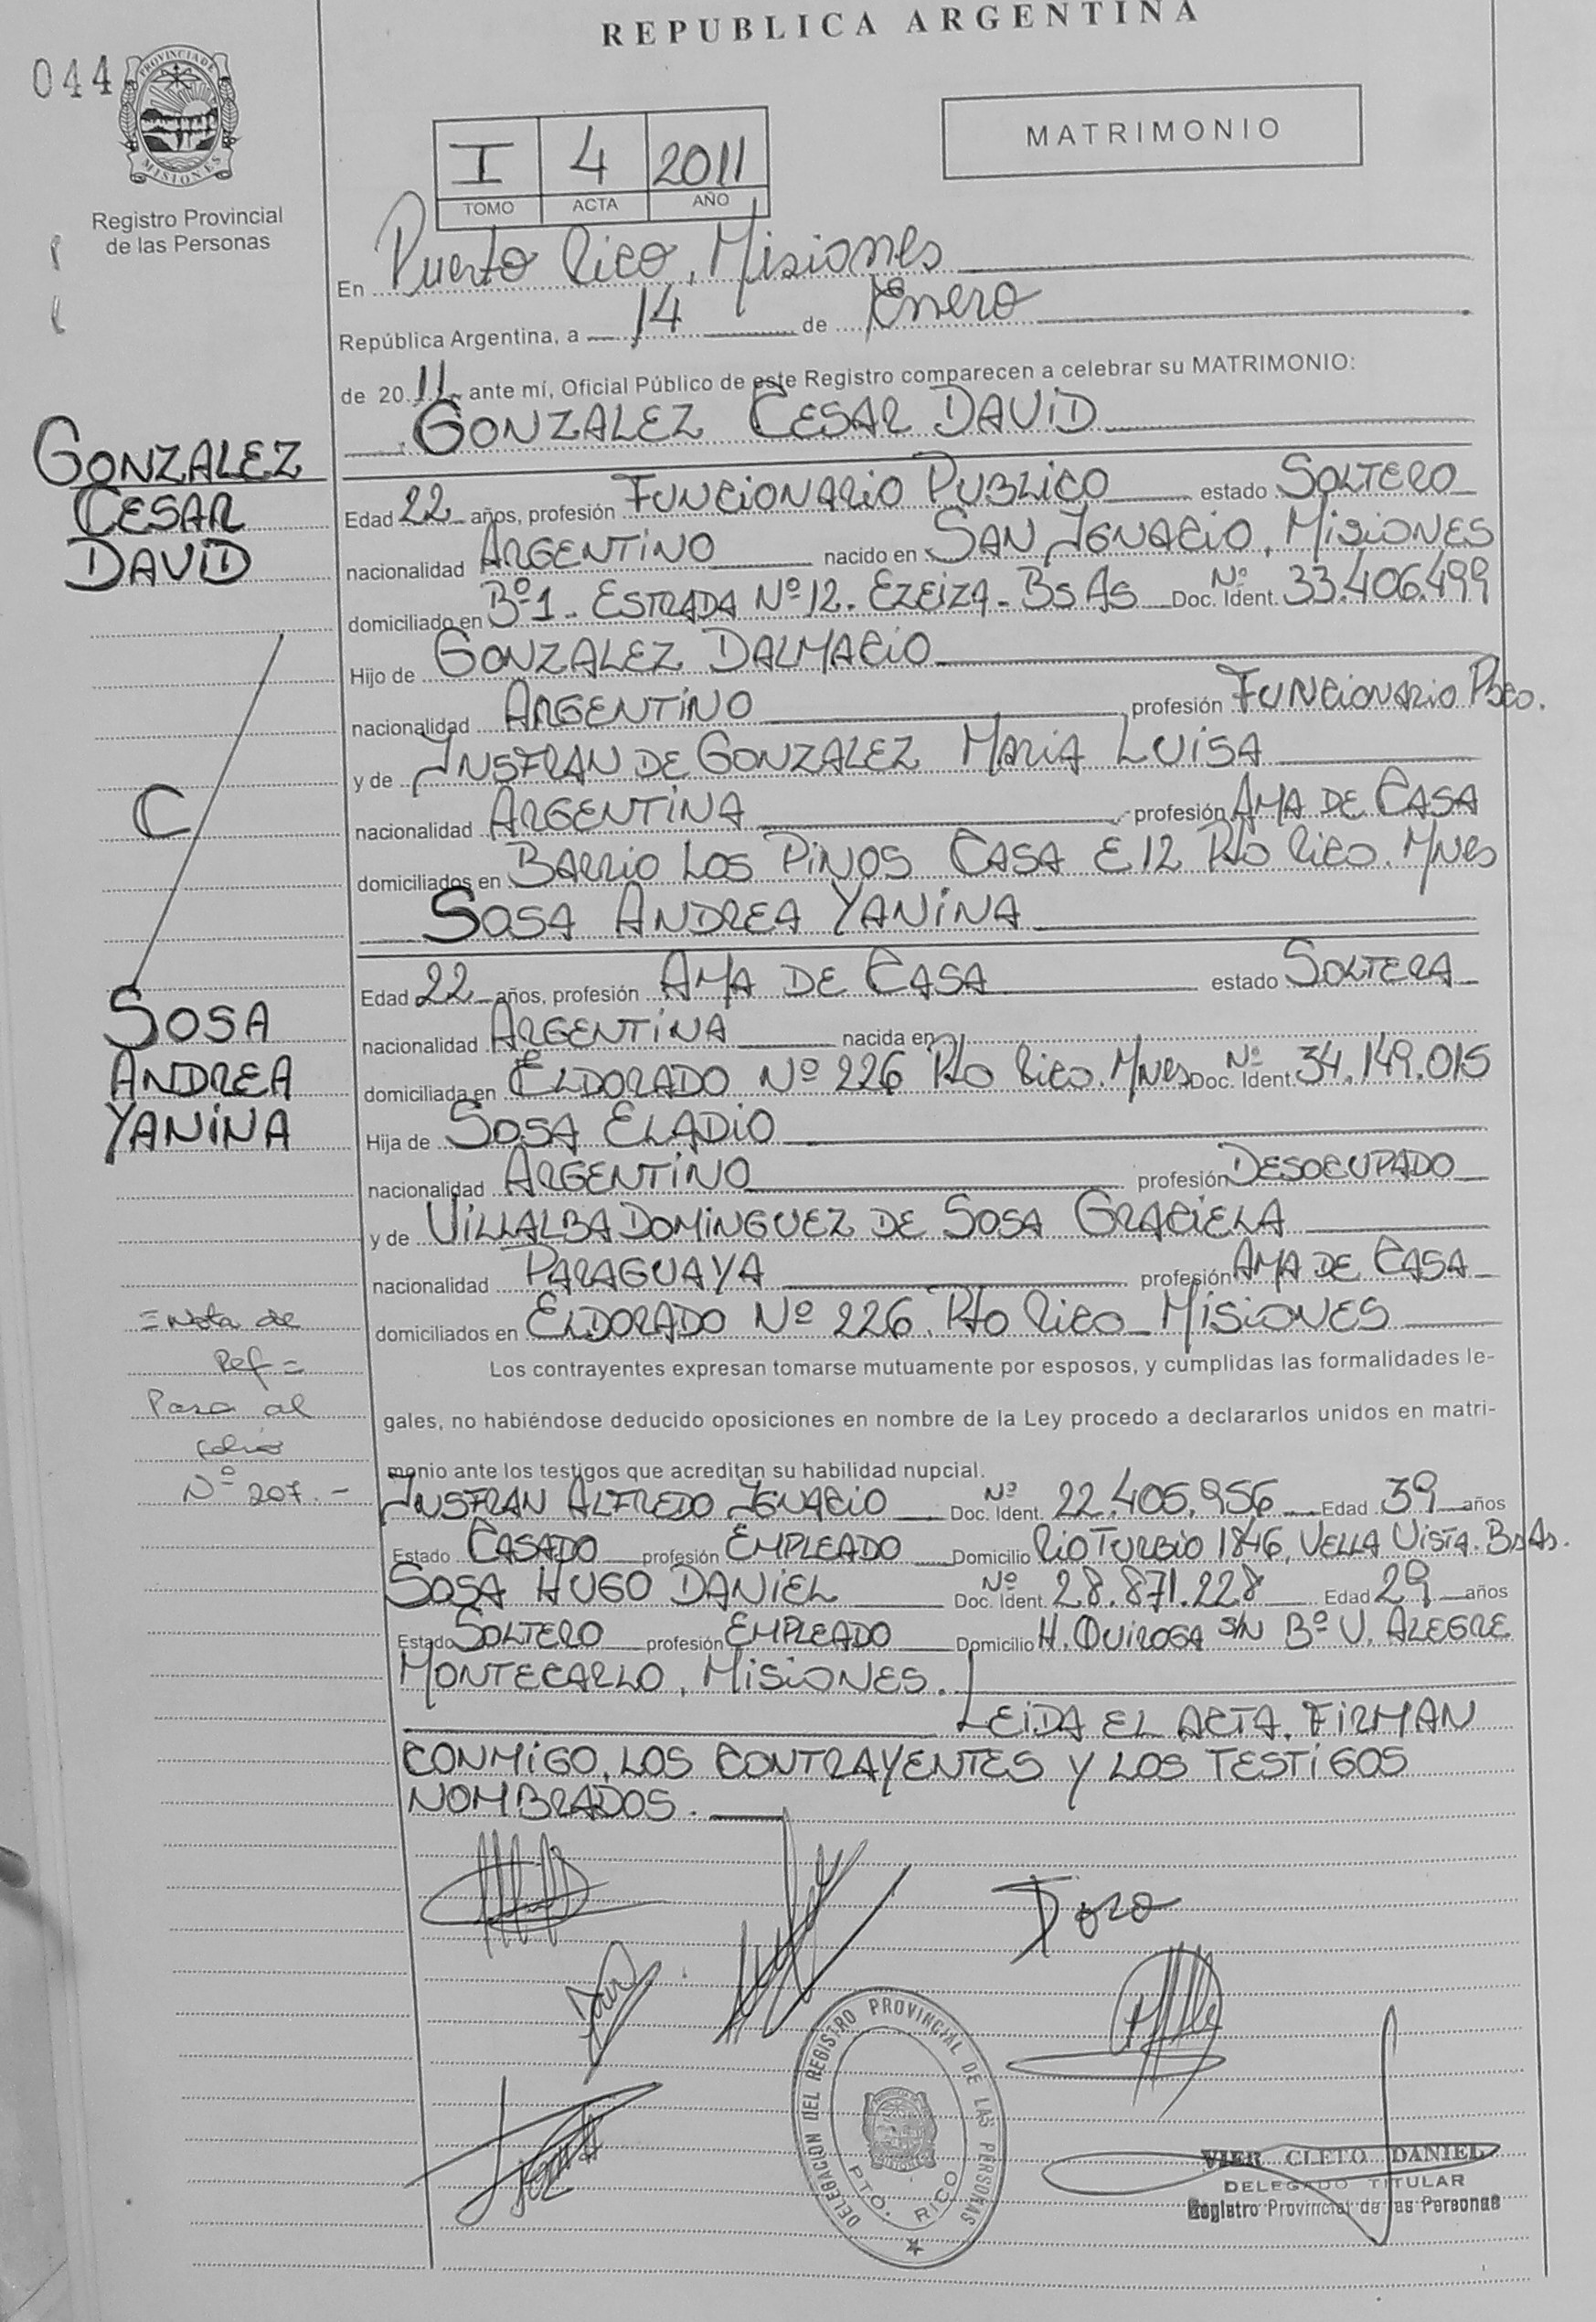 REPUBLICA ARGENTINA
044
PROVINCIA DE
MISIONES
Registro Provincial
de las Personas
MATRIMONIO
I 4 2011
TOMO ACTA AÑO
En Puerto Rico, Misiones
República Argentina, a 14 de Enero
de 2011 ante mí, Oficial Público de este Registro comparecen a celebrar su MATRIMONIO:
GONZALEZ CESAR DAVID
GONZALEZ
CESAR
DAVID
Edad 22 años, profesión FUNCIONARIO PUBLICO estado SOLTERO
nacionalidad ARGENTINO nacido en SAN IGNACIO, MISIONES
domiciliado en Bº1. ESTRADA Nº12. EZEIZA. Bs As Doc. Ident. Nº 33.406.499
Hijo de GONZALEZ DALMACIO
nacionalidad ARGENTINO profesión FUNCIONARIO Pbco.
y de INSFRAN DE GONZALEZ MARIA LUISA
nacionalidad ARGENTINA profesión AMA DE CASA
C
domiciliados en BARRIO LOS PINOS CASA E12 Pto Rico. Mnes
SOSA ANDREA YANINA
SOSA
ANDREA
YANINA
Edad 22 años, profesión AMA DE CASA estado SOLTERA
nacionalidad ARGENTINA nacida en
domiciliada en ELDORADO Nº 226 Pto Rico. Mnes Doc. Ident. Nº 34.149.015
Hija de SOSA ELADIO
nacionalidad ARGENTINO profesión DESOCUPADO
y de VILLALBA DOMINGUEZ DE SOSA GRACIELA
nacionalidad PARAGUAYA profesión AMA DE CASA
domiciliados en ELDORADO Nº 226. Pto Rico MISIONES
=Nota de
Ref=
Pasa al
folio
Nº 207.-
Los contrayentes expresan tomarse mutuamente por esposos, y cumplidas las formalidades le-
gales, no habiéndose deducido oposiciones en nombre de la Ley procedo a declararlos unidos en matri-
monio ante los testigos que acreditan su habilidad nupcial.
INSFRAN ALFREDO IGNACIO Doc. Ident. Nº 22.405.956 Edad 39 años
Estado CASADO profesión EMPLEADO Domicilio RIO TURBIO 1846, VELLA VISTA. Bs As.
SOSA HUGO DANIEL Doc. Ident. Nº 28.871.228 Edad 29 años
Estado SOLTERO profesión EMPLEADO Domicilio H. QUIROGA S/N Bº V. ALEGRE
MONTECARLO, MISIONES.
LEIDA EL ACTA, FIRMAN
CONMIGO, LOS CONTRAYENTES Y LOS TESTIGOS
NOMBRADOS.
DELEGACION DEL REGISTRO PROVINCIAL DE LAS PERSONAS
PTO. RICO
VIER CLETO DANIEL
DELEGADO TITULAR
Registro Provincial de las Personas